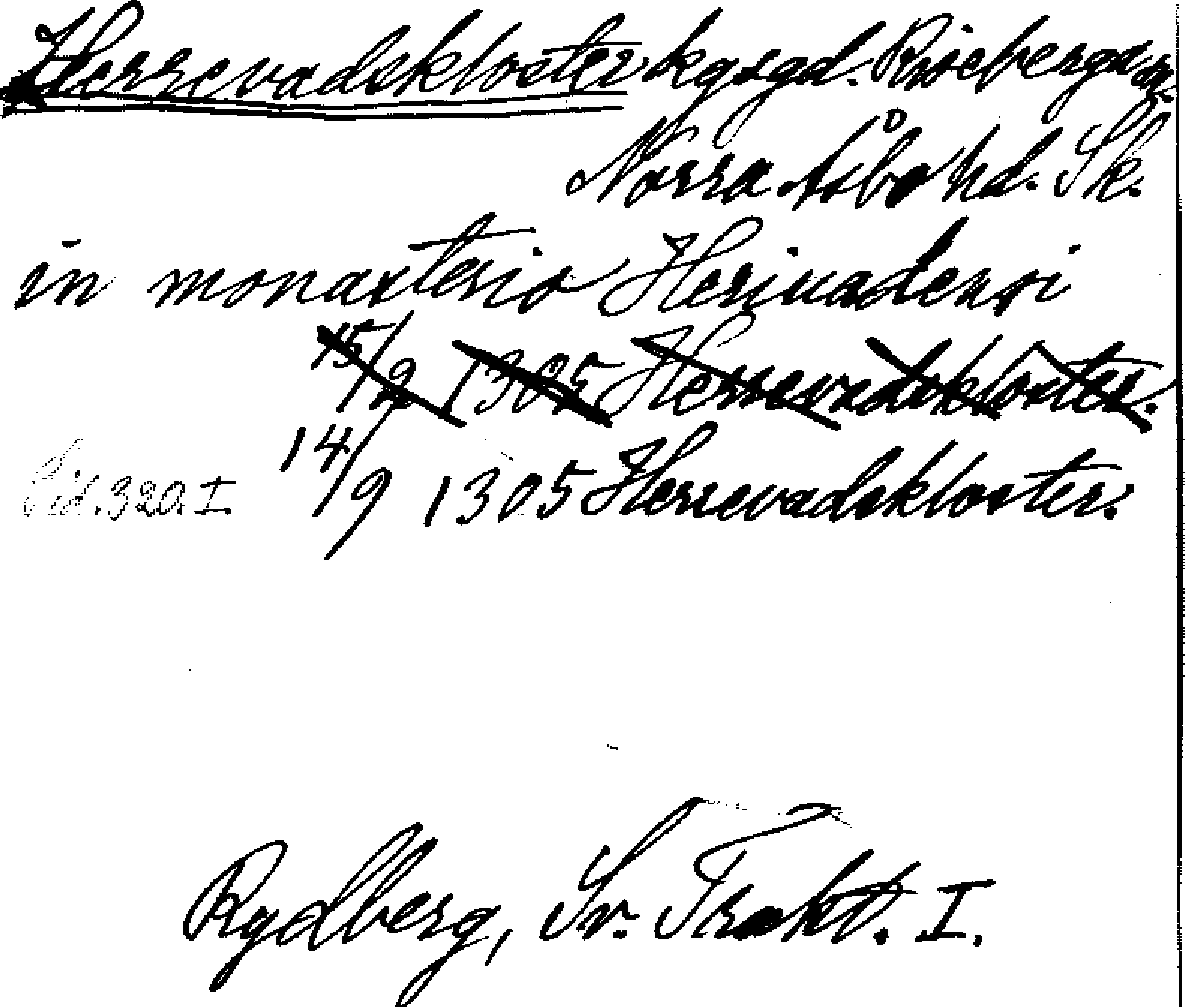 Herrevadskloster kgsgd. Riseberga sn.
Norra Åsbo hd. Sk.
in monasterio Heriuadensi
15/9 1305 Herrevadskloster.
14/9 1305 Herrevadskloster.
Sid. 320. I.
Rydberg, Sv. Trakt. I.